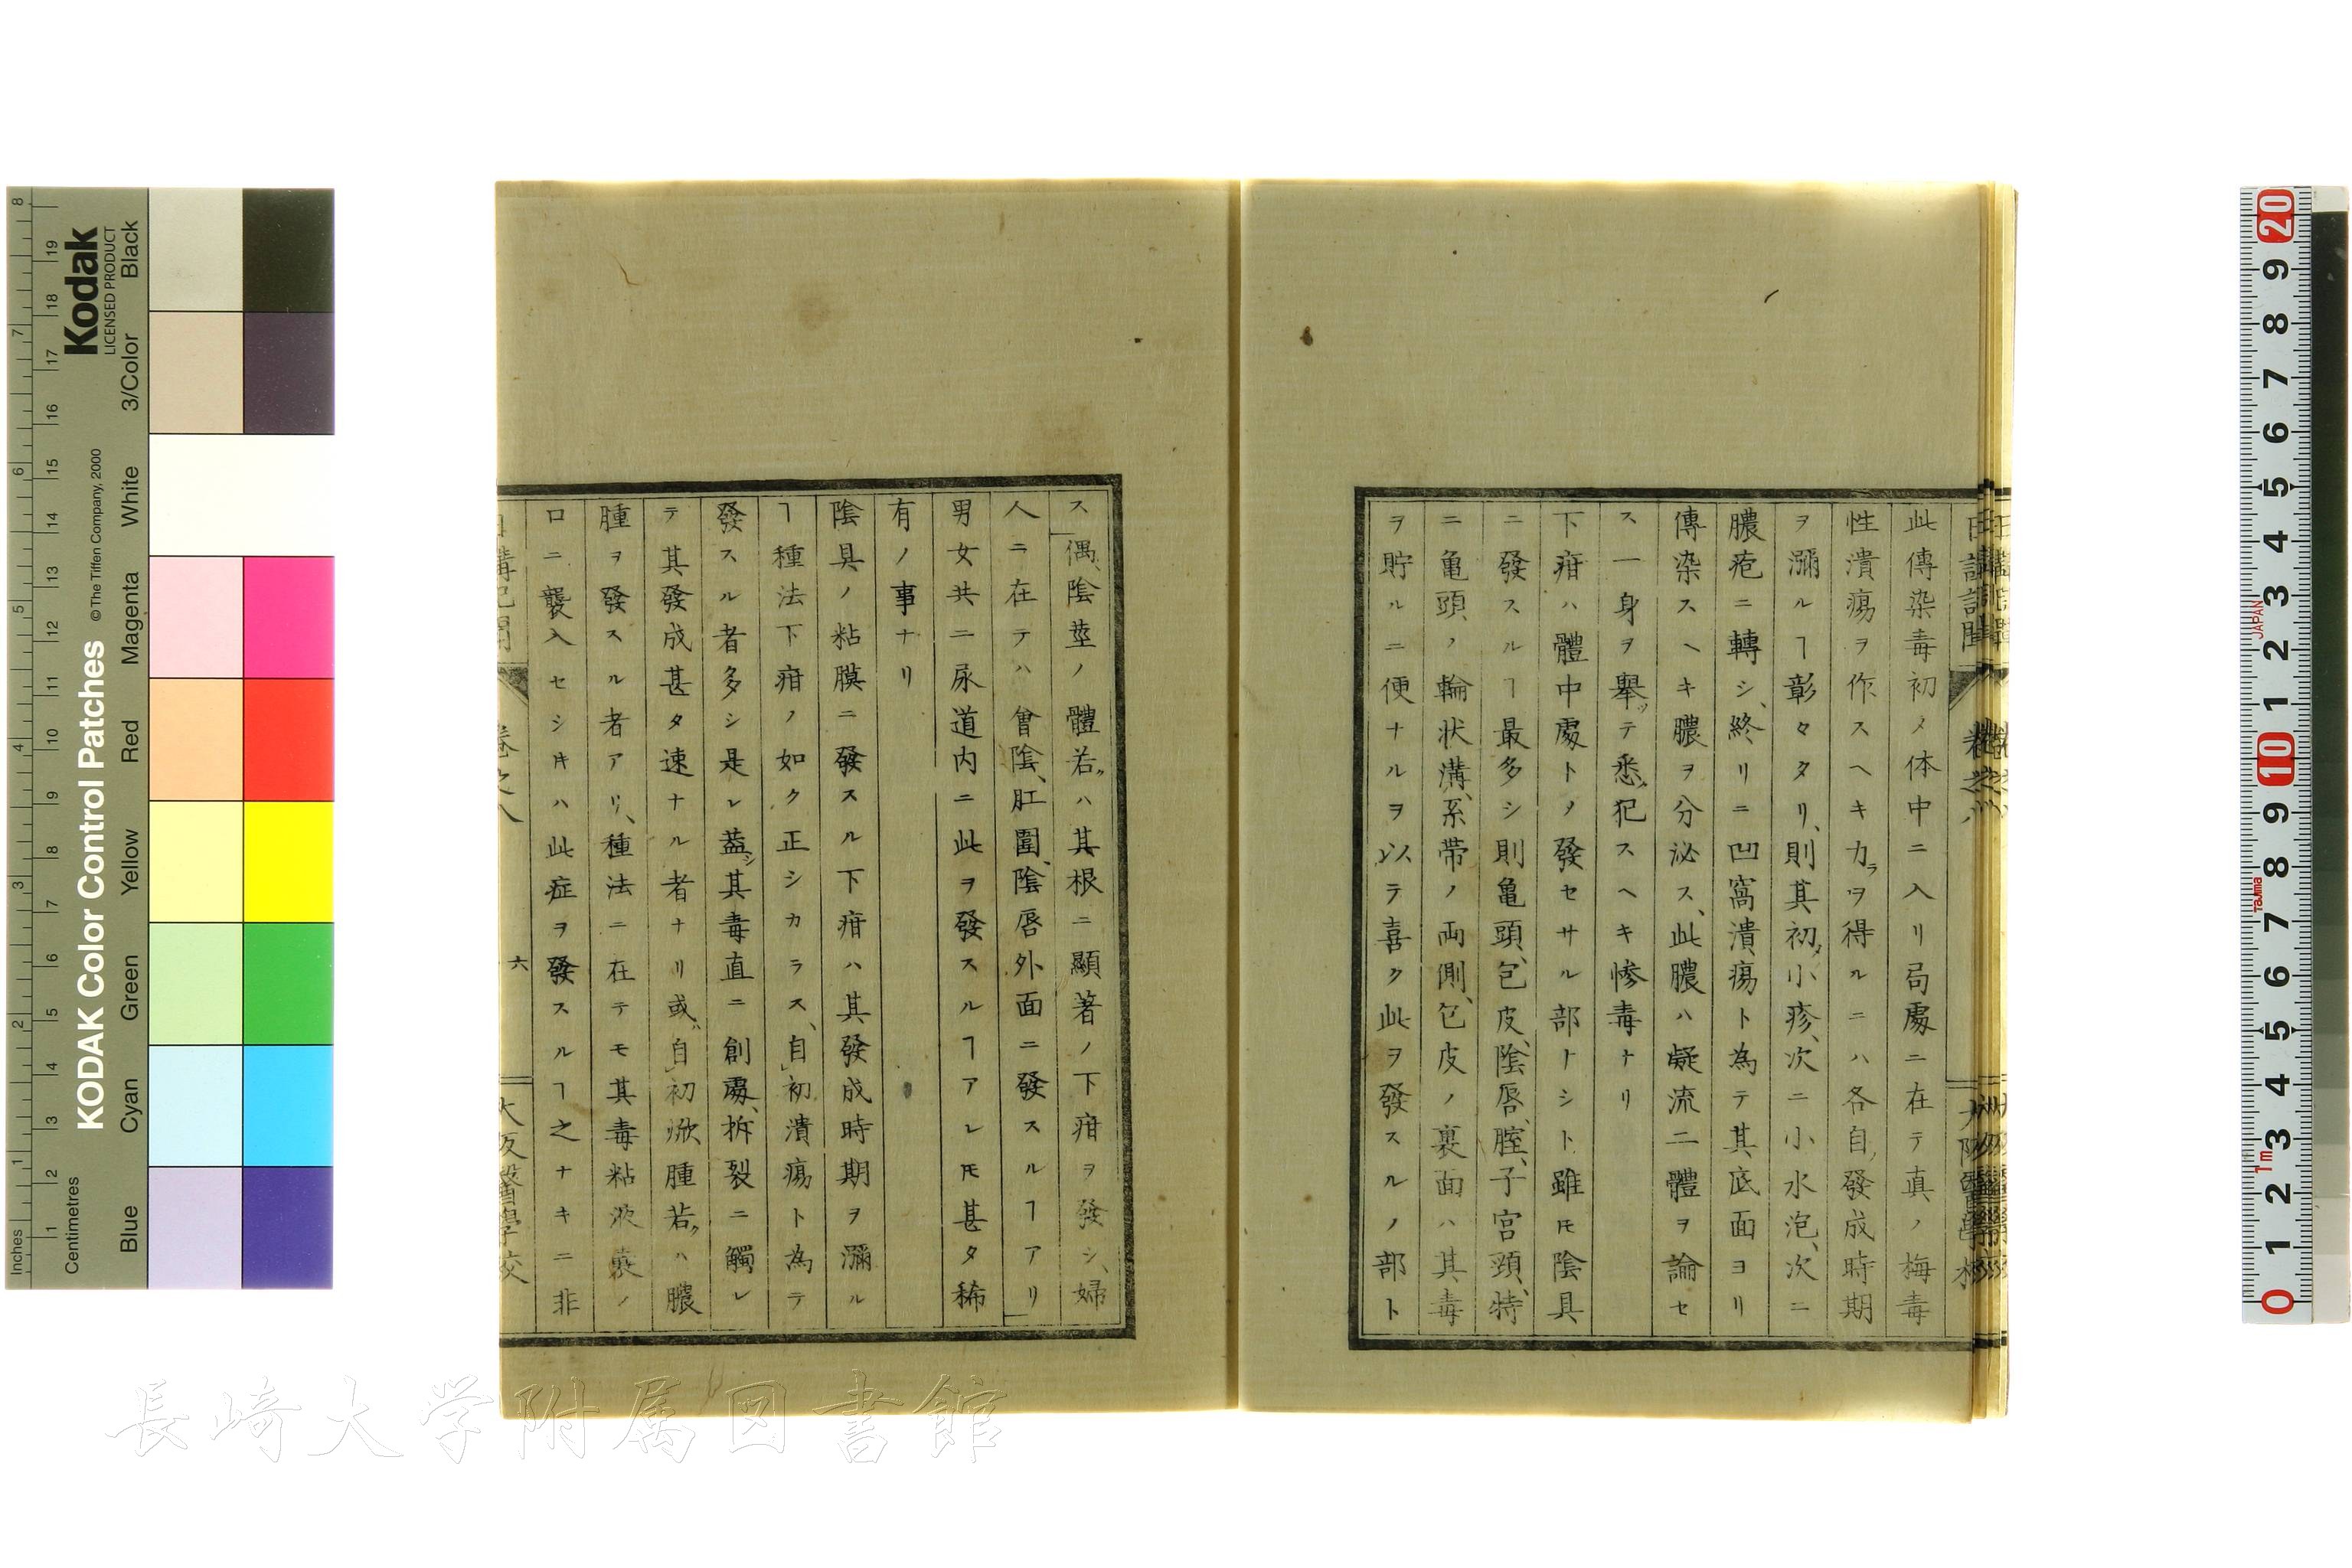 此傳染毒初メ体中ニ入リ局處ニ在テ真ノ梅毒
性潰瘍ヲ作スヘキ力ヲ得ルニハ各自發成時期
ヲ瀰ルヿ彰々タリ、則其初小疹、次ニ小水泡、次ニ
膿疱ニ轉シ、終リニ凹窩潰瘍ト為テ其底面ヨリ
傳染スヘキ膿ヲ分泌ス、此膿ハ凝流二體ヲ論セ
ス一身ヲ舉ッテ悉ク犯スヘキ惨毒ナリ
下疳ハ體中處トノ發セサル部ナシト雖𪜈陰具
ニ發スルヿ最多シ則亀頭、包皮、陰唇、腟、子宮頸、特
ニ亀頭ノ輪状溝、系帶ノ両側、包皮ノ裏面ハ其毒
ヲ貯ルニ便ナルヲ以テ喜ク此ヲ發スルノ部ト
ス偶、陰莖ノ體若クハ其根ニ顯著ノ下疳ヲ發シ、婦
人ニ在テハ會陰、肛圍、陰唇外面ニ發スルヿアリ
男女共ニ尿道内ニ此ヲ發スルヿアレ𪜈甚タ稀
有ノ事ナリ
陰具ノ粘膜ニ發スル下疳ハ其發成時期ヲ瀰ル
ヿ種法下疳ノ如ク正シカラス、自初潰瘍ト為テ
發スル者多シ是レ蓋シ其毒直ニ創處、拆裂ニ觸レ
テ其發成甚タ速ナル者ナリ或ハ自初焮腫若クハ膿
腫ヲ發スル者アリ、種法ニ在テモ其毒粘液囊ノ
口ニ襲入セシキハ此症ヲ發スルヿ之ナキニ非
日講記聞
卷之八
六
大阪醫學校
Kodak
LICENSED PRODUCT
KODAK Color Control Patches
© The Tiffen Company, 2000
Inches
Centimetres
Blue Cyan Green Yellow Red Magenta White 3/Color Black
JAPAN
Tajima
1m
長崎大学附属図書館